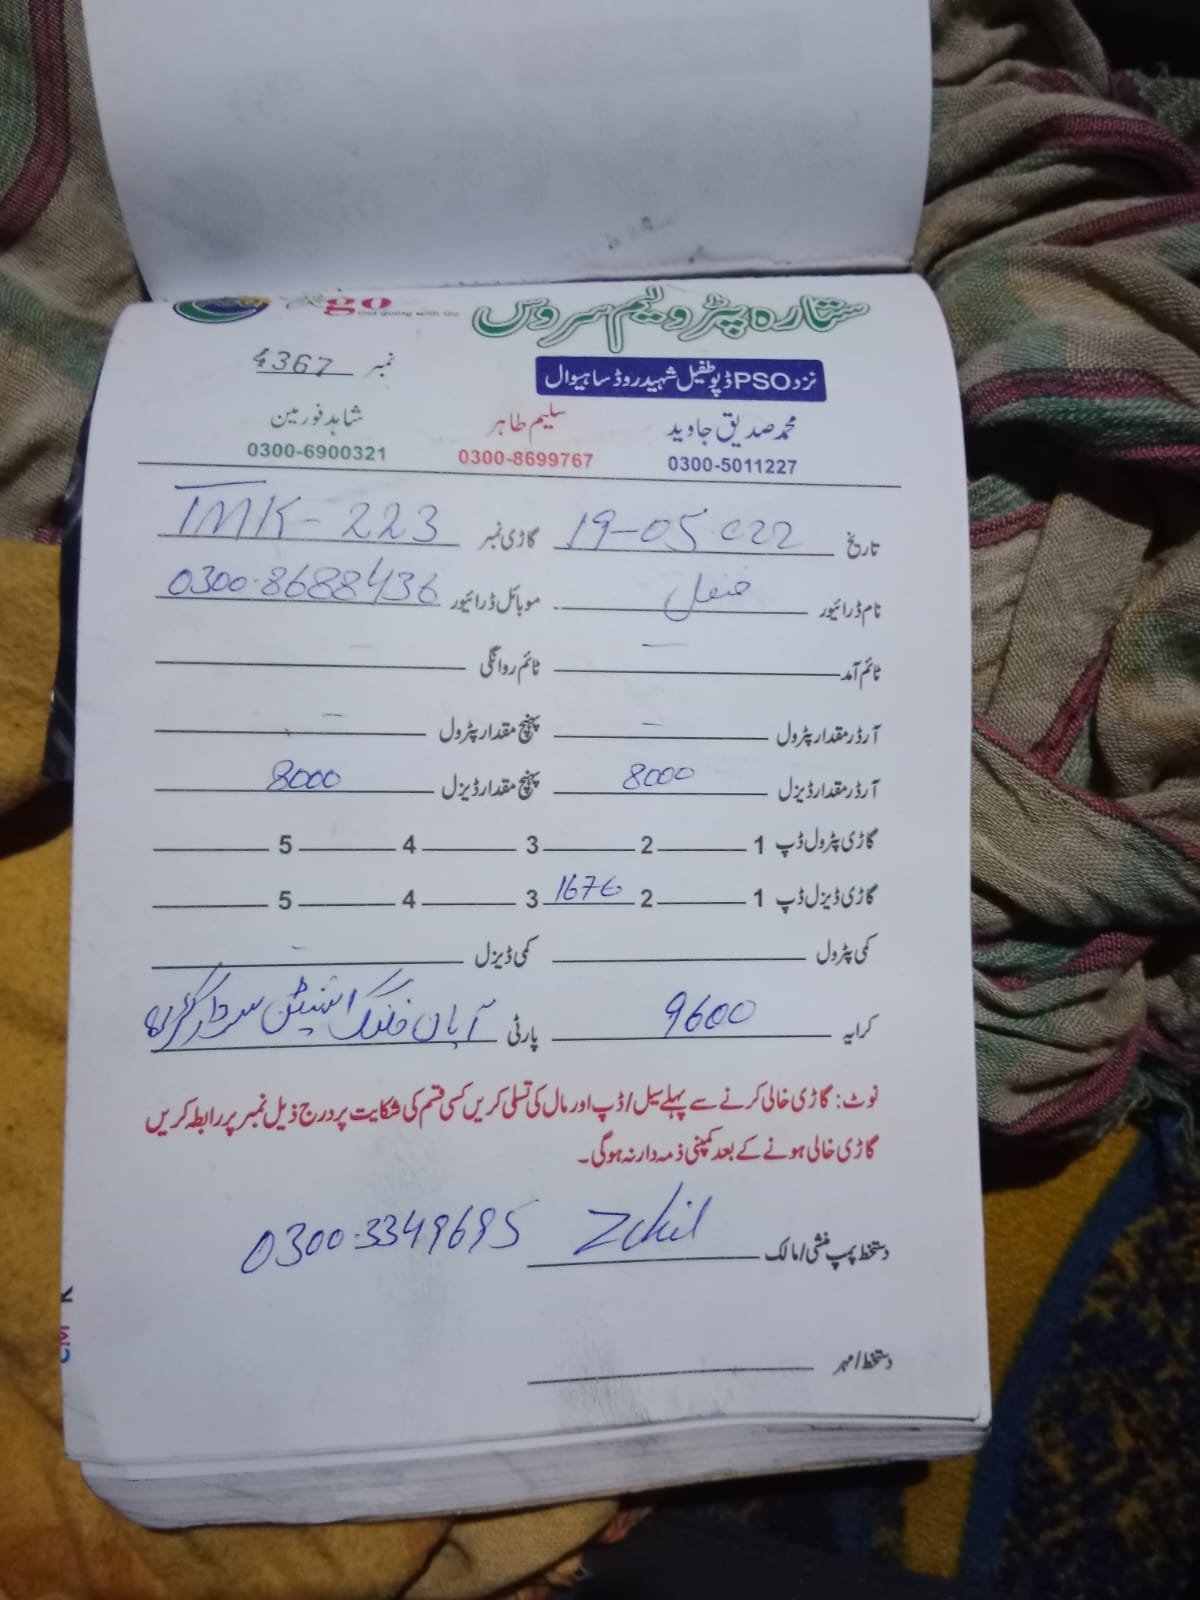 go
Get going with Go
ستارہ پٹرولیم سروس
نمبر 4367
نزد PSO ڈپو طفیل شہید روڈ ساہیوال
محمد صدیق جاوید سلیم طاہر شاہد فورمین
0300-5011227 0300-8699767 0300-6900321
تاریخ 19-05-022 گاڑی نمبر TMK-223
نام ڈرائیور موبائل ڈرائیور 0300-8688436
ٹائم آمد — ٹائم روانگی —
آرڈر مقدار پٹرول — پہنچ مقدار پٹرول —
آرڈر مقدار ڈیزل 8000 پہنچ مقدار ڈیزل 8000
گاڑی پٹرول ڈپ 1 2 3 4 5
گاڑی ڈیزل ڈپ 1 2 1676 3 4 5
کمی پٹرول کمی ڈیزل -
کرایہ 9600 پارٹی آبان فلنگ اسٹیشن
نوٹ: گاڑی خالی کرنے سے پہلے سیل / ڈپ اور مال کی تسلی کریں کسی قسم کی شکایت پر درج ذیل نمبر پر رابطہ کریں
گاڑی خالی ہونے کے بعد کمپنی ذمہ دار نہ ہوگی۔
دستخط پمپ منشی/مالک 0300-3349695
دستخط/مہر
CM K